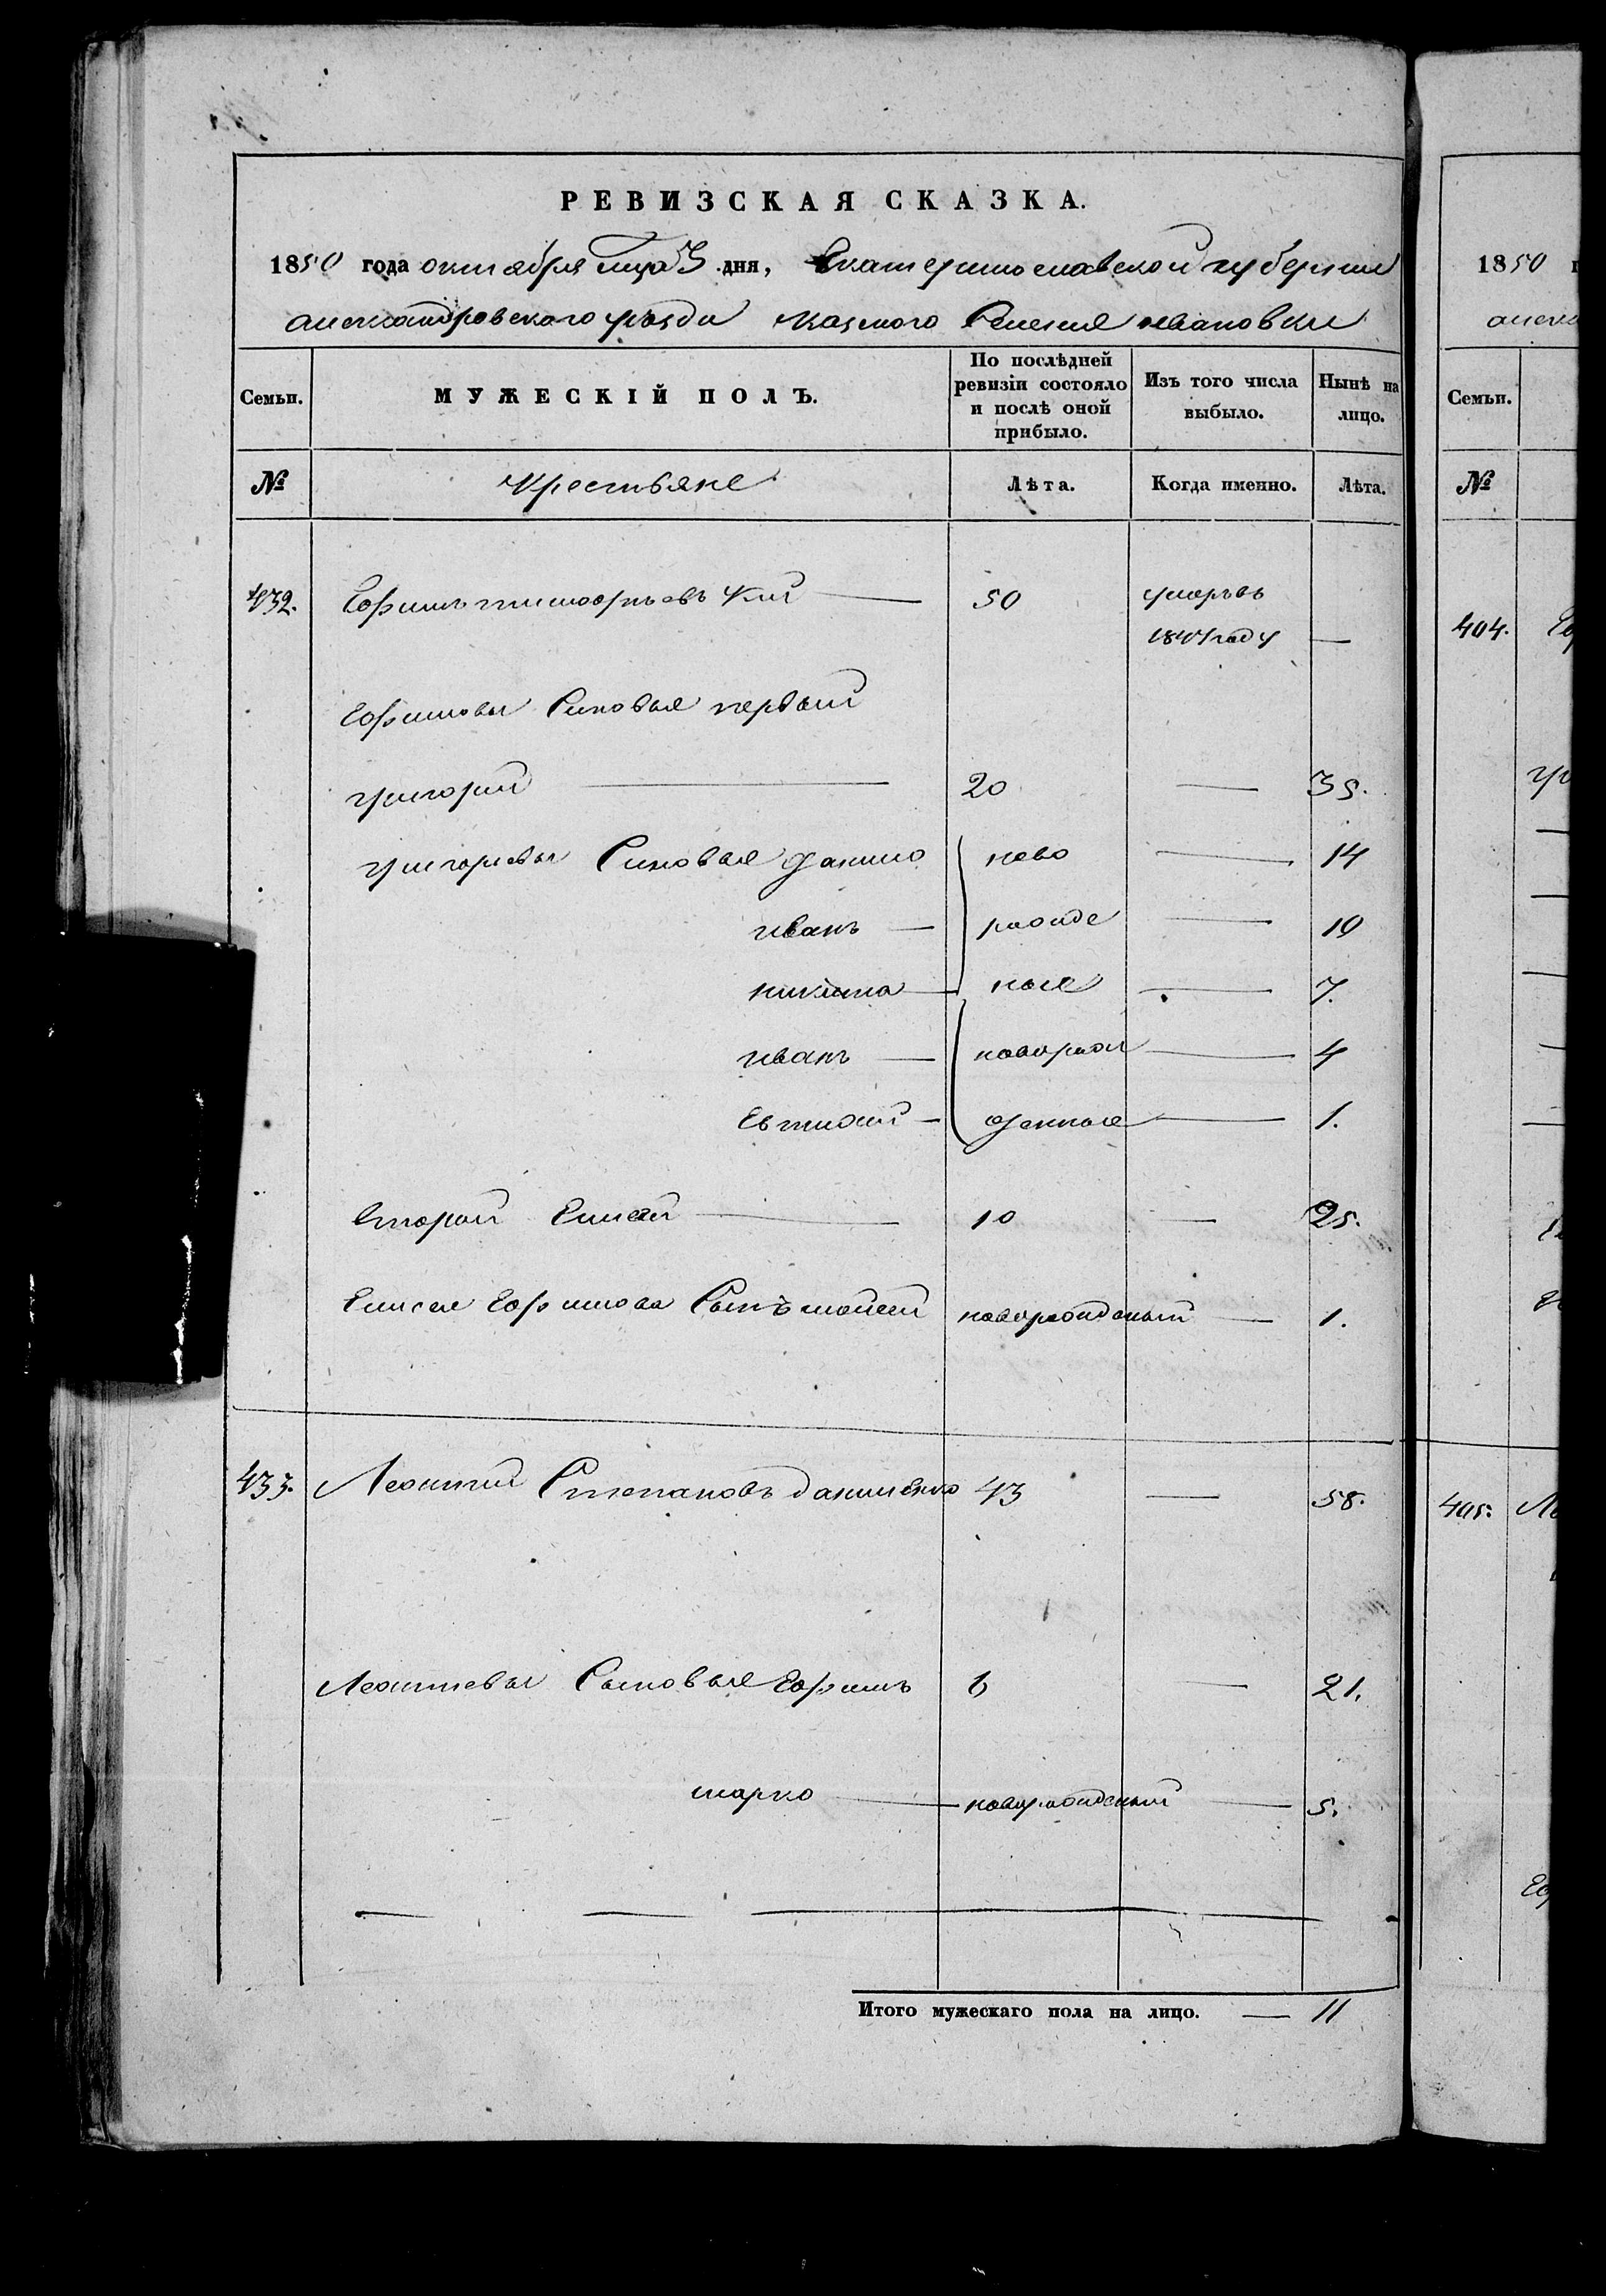 РЕВИЗСКАЯ СКАЗКА.
1850 года октября мца 3 дня, Екатеринославской губернии
александровского уезда казеного Селения ивановки
Семьи. МУЖЕСКІЙ ПОЛЪ. По послѣдней ревизіи состояло и послѣ оной прибыло. Изъ того числа выбыло. Нынѣ на лицо.
№ Крестьяне Лѣта. Когда именно. Лѣта.
432. Ефимъ тимофѣевъ 50 умеръ въ
году —
Ефимовы Синовье первый
григорий — 20 — 35.
григориевы Синовье данило ново — 14
иванъ — рожде — 10
никита — ные — 7.
иванъ — новорож — 4
Евтихий — денные — 1.
второй Елисей — 10 — 25.
Елисея Ефимова Сынъ моисей новорожденый — 1.
433. Леонтий Степановъ даниленко 43 — 58.
Леонтиевы Сыновье Ефимъ 6 — 21.
марко — новорожденый — 5.
Итого мужескаго пола на лицо. — 11
1850
Семьи.
№
404.
405.